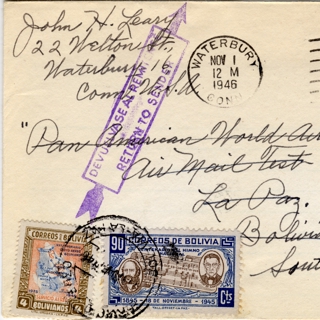 John H. Leary
22 Welton St.,
Waterbury 16
Conn. U.S.A.
DEVUELVASE AL REMITENTE
RETURN TO SENDER
WATERBURY
NOV 1
12 M
1946
CONN.
"Pan American World Air
Air Mail Test
La Paz,
Bolivia
Sout
CORREOS DE BOLIVIA
4
BOLIVIANOS
4
CORREOS DE BOLIVIA
90
HIMNO
1845 - 18 DE NOVIEMBRE - 1945
Cts